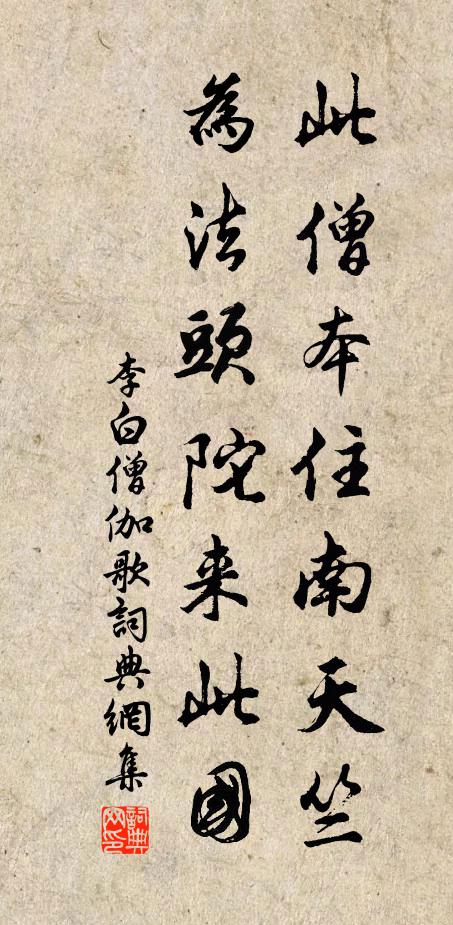 此僧本住南天竺
為法頭陀来此國
李白僧伽歌詞典網集
詞典网印